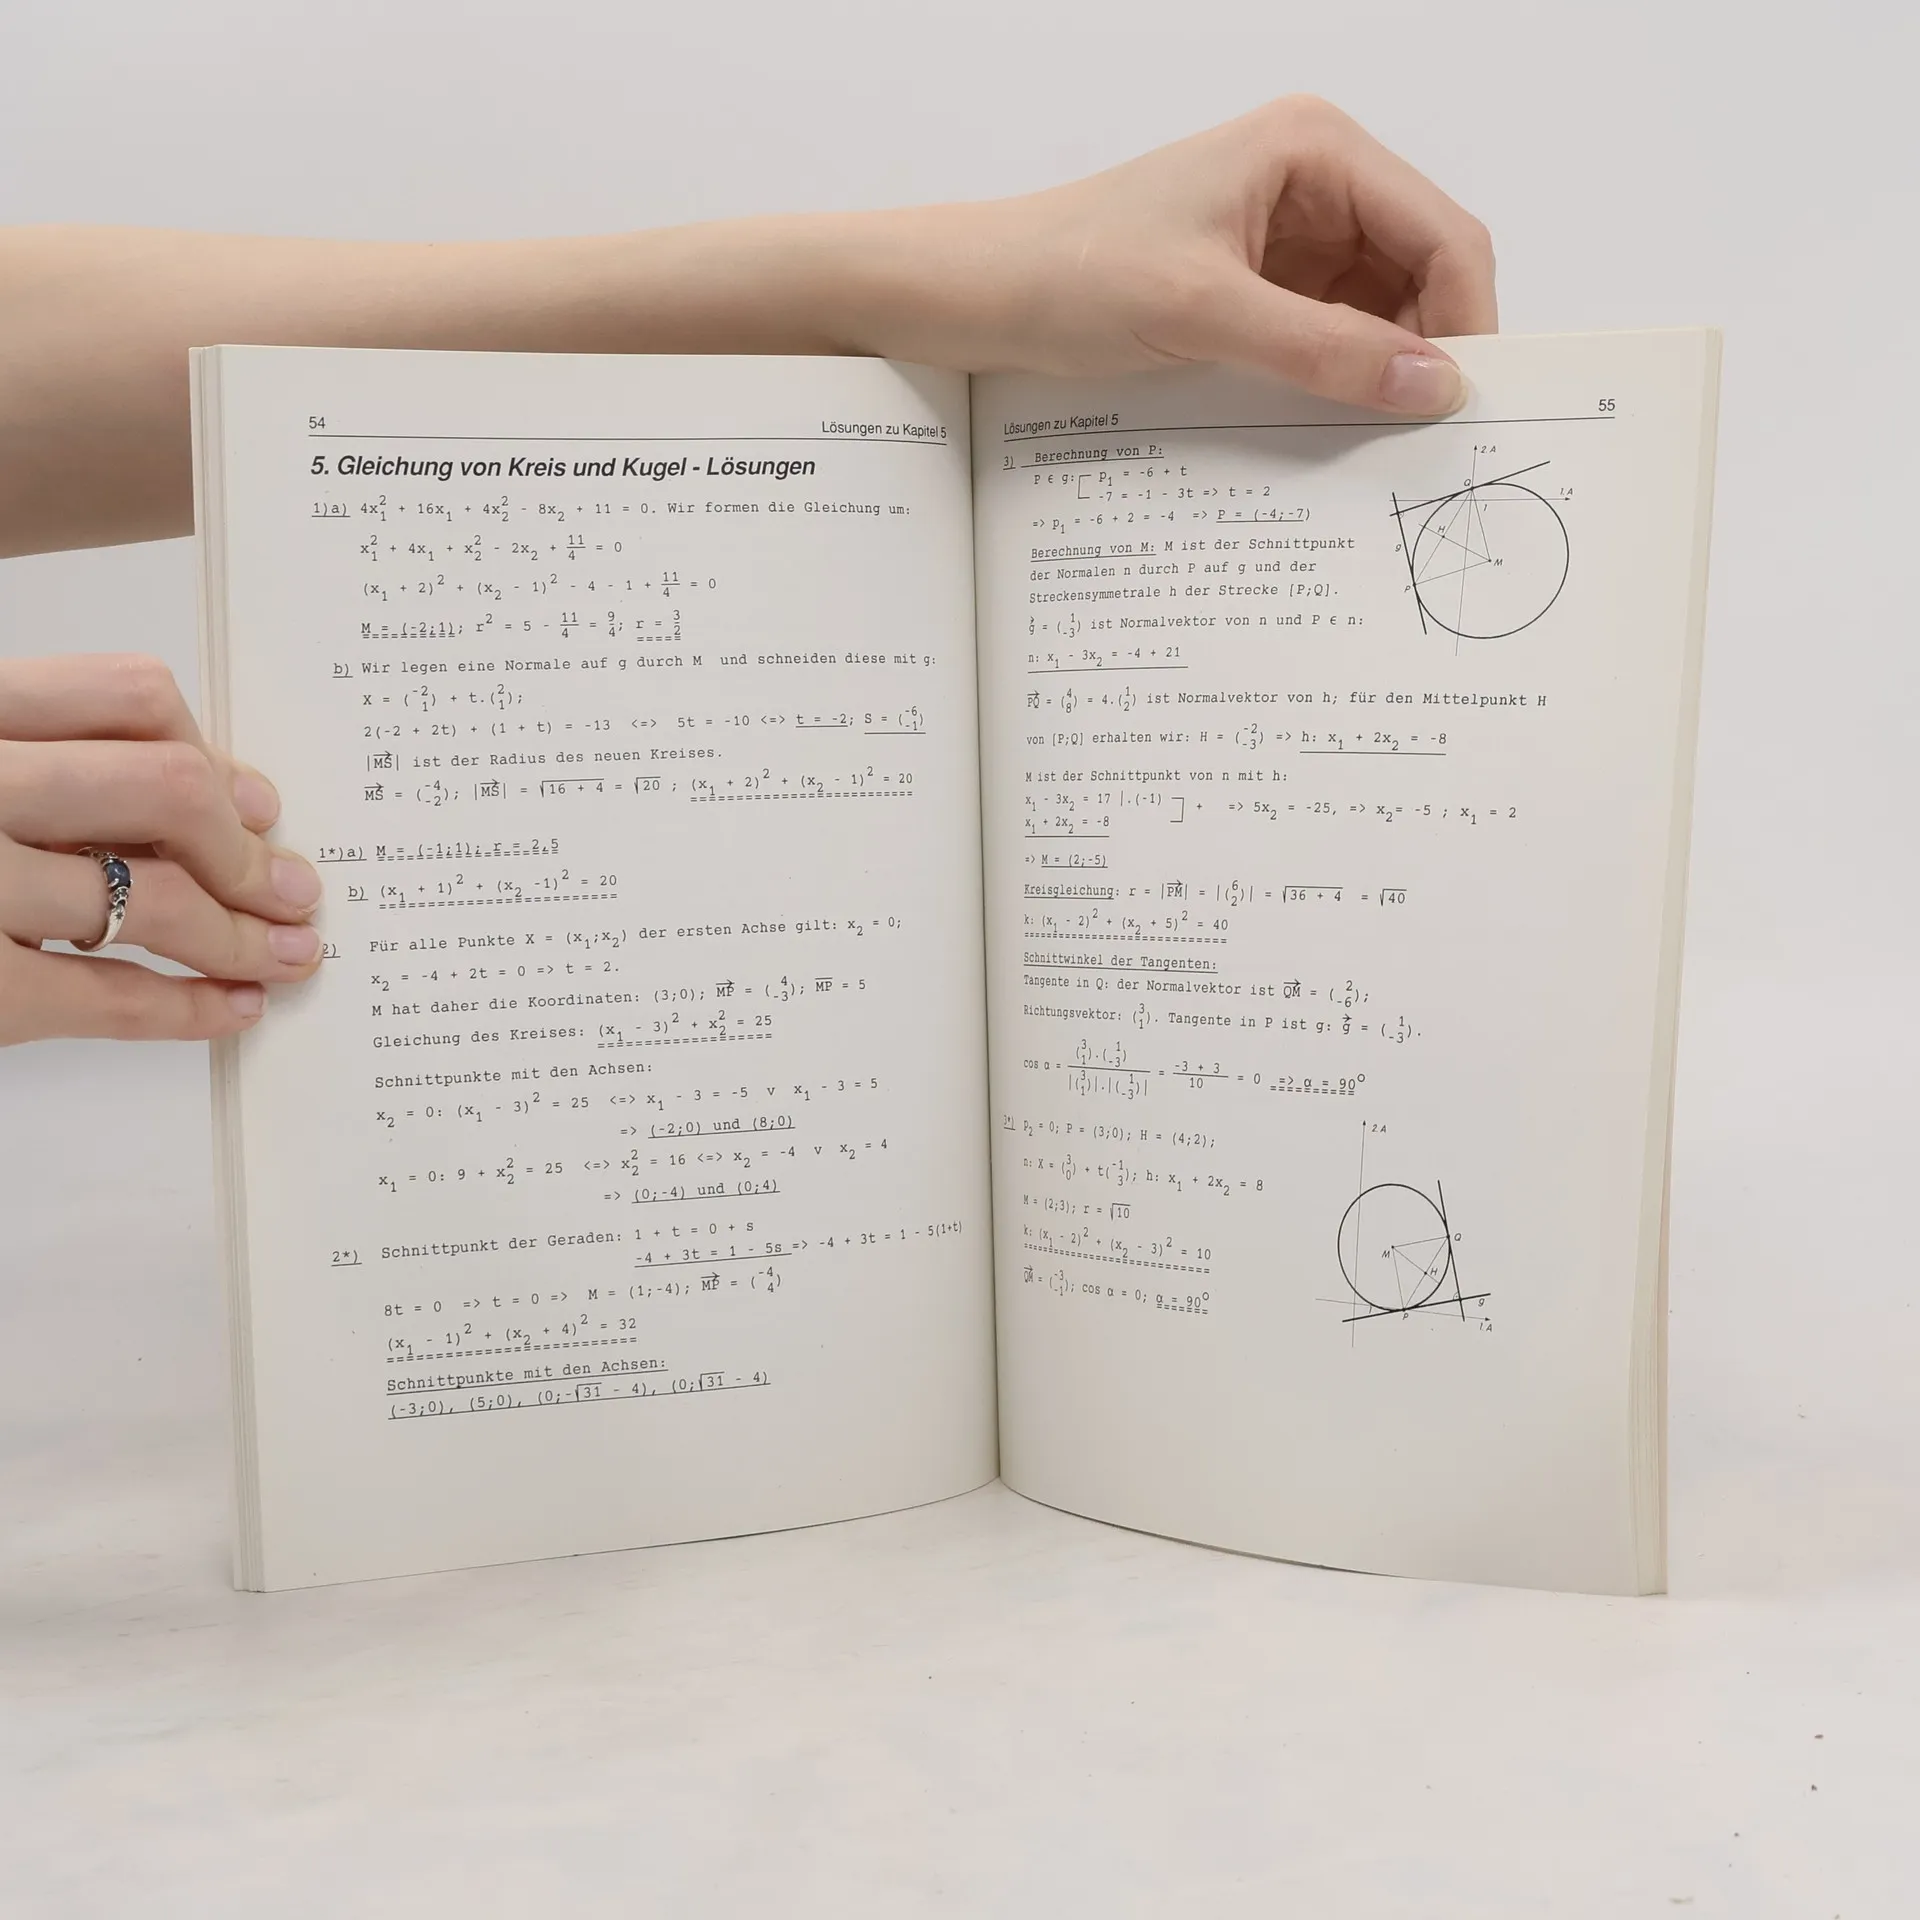 54 Lösungen zu Kapitel 5
5. Gleichung von Kreis und Kugel - Lösungen
1)a) 4x₁² + 16x₁ + 4x₂² - 8x₂ + 11 = 0. Wir formen die Gleichung um:
x₁² + 4x₁ + x₂² - 2x₂ + 11/4 = 0
(x₁ + 2)² + (x₂ - 1)² - 4 - 1 + 11/4 = 0
M = (-2;1); r² = 5 - 11/4 = 9/4; r = 3/2
b) Wir legen eine Normale auf g durch M und schneiden diese mit g:
X = (-2 1) + t.(2 1);
2(-2 + 2t) + (1 + t) = -13 <=> 5t = -10 <=> t = -2; S = (-6 -1)
|MS| ist der Radius des neuen Kreises.
MS = (-4 -2); |MS| = √16 + 4 = √20 ; (x₁ + 2)² + (x₂ - 1)² = 20
1*)a) M = (-1;1); r = 2,5
b) (x₁ + 1)² + (x₂ -1)² = 20
2) Für alle Punkte X = (x₁;x₂) der ersten Achse gilt: x₂ = 0;
x₂ = -4 + 2t = 0 => t = 2.
M hat daher die Koordinaten: (3;0); MP = (4 -3); MP = 5
Gleichung des Kreises: (x₁ - 3)² + x₂² = 25
Schnittpunkte mit den Achsen:
x₂ = 0: (x₁ - 3)² = 25 <=> x₁ - 3 = -5 v x₁ - 3 = 5
=> (-2;0) und (8;0)
x₁ = 0: 9 + x₂² = 25 <=> x₂² = 16 <=> x₂ = -4 v x₂ = 4
=> (0;-4) und (0;4)
2*) Schnittpunkt der Geraden: 1 + t = 0 + s
-4 + 3t = 1 - 5s => -4 + 3t = 1 - 5(1+t)
8t = 0 => t = 0 => M = (1;-4); MP = (-4 4)
(x₁ - 1)² + (x₂ + 4)² = 32
Schnittpunkte mit den Achsen:
(-3;0), (5;0), (0;-√31 - 4), (0;√31 - 4)
Lösungen zu Kapitel 5 55
3) Berechnung von P:
P ∈ g: p₁ = -6 + t
-7 = -1 - 3t => t = 2
=> p₁ = -6 + 2 = -4 => P = (-4;-7)
Berechnung von M: M ist der Schnittpunkt
der Normalen n durch P auf g und der
Streckensymmetrale h der Strecke [P;Q].
g = (1 -3) ist Normalvektor von n und P ∈ n:
n: x₁ - 3x₂ = -4 + 21
2.A
Q
1.A
1
H
g
M
P
PQ = (4 8) = 4.(1 2) ist Normalvektor von h; für den Mittelpunkt H
von [P;Q] erhalten wir: H = (-2 -3) => h: x₁ + 2x₂ = -8
M ist der Schnittpunkt von n mit h:
x₁ - 3x₂ = 17 |.(-1) + => 5x₂ = -25, => x₂= -5 ; x₁ = 2
x₁ + 2x₂ = -8
=> M = (2;-5)
Kreisgleichung: r = |PM| = |(6 2)| = √36 + 4 = √40
k: (x₁ - 2)² + (x₂ + 5)² = 40
Schnittwinkel der Tangenten:
Tangente in Q: der Normalvektor ist QM = (2 -6);
Richtungsvektor: (3 1). Tangente in P ist g: g = (1 -3).
cos α = (3 1).(1 -3) / |(3 1)|.|(1 -3)| = -3 + 3 / 10 = 0 => α = 90°
3*) p₂ = 0; P = (3;0); H = (4;2);
n: X = (3 0) + t(-1 3); h: x₁ + 2x₂ = 8
M = (2;3); r = √10
k: (x₁ - 2)² + (x₂ - 3)² = 10
QM = (-3 -1); cos α = 0; α = 90°
2.A
Q
M
H
g
P
1.A